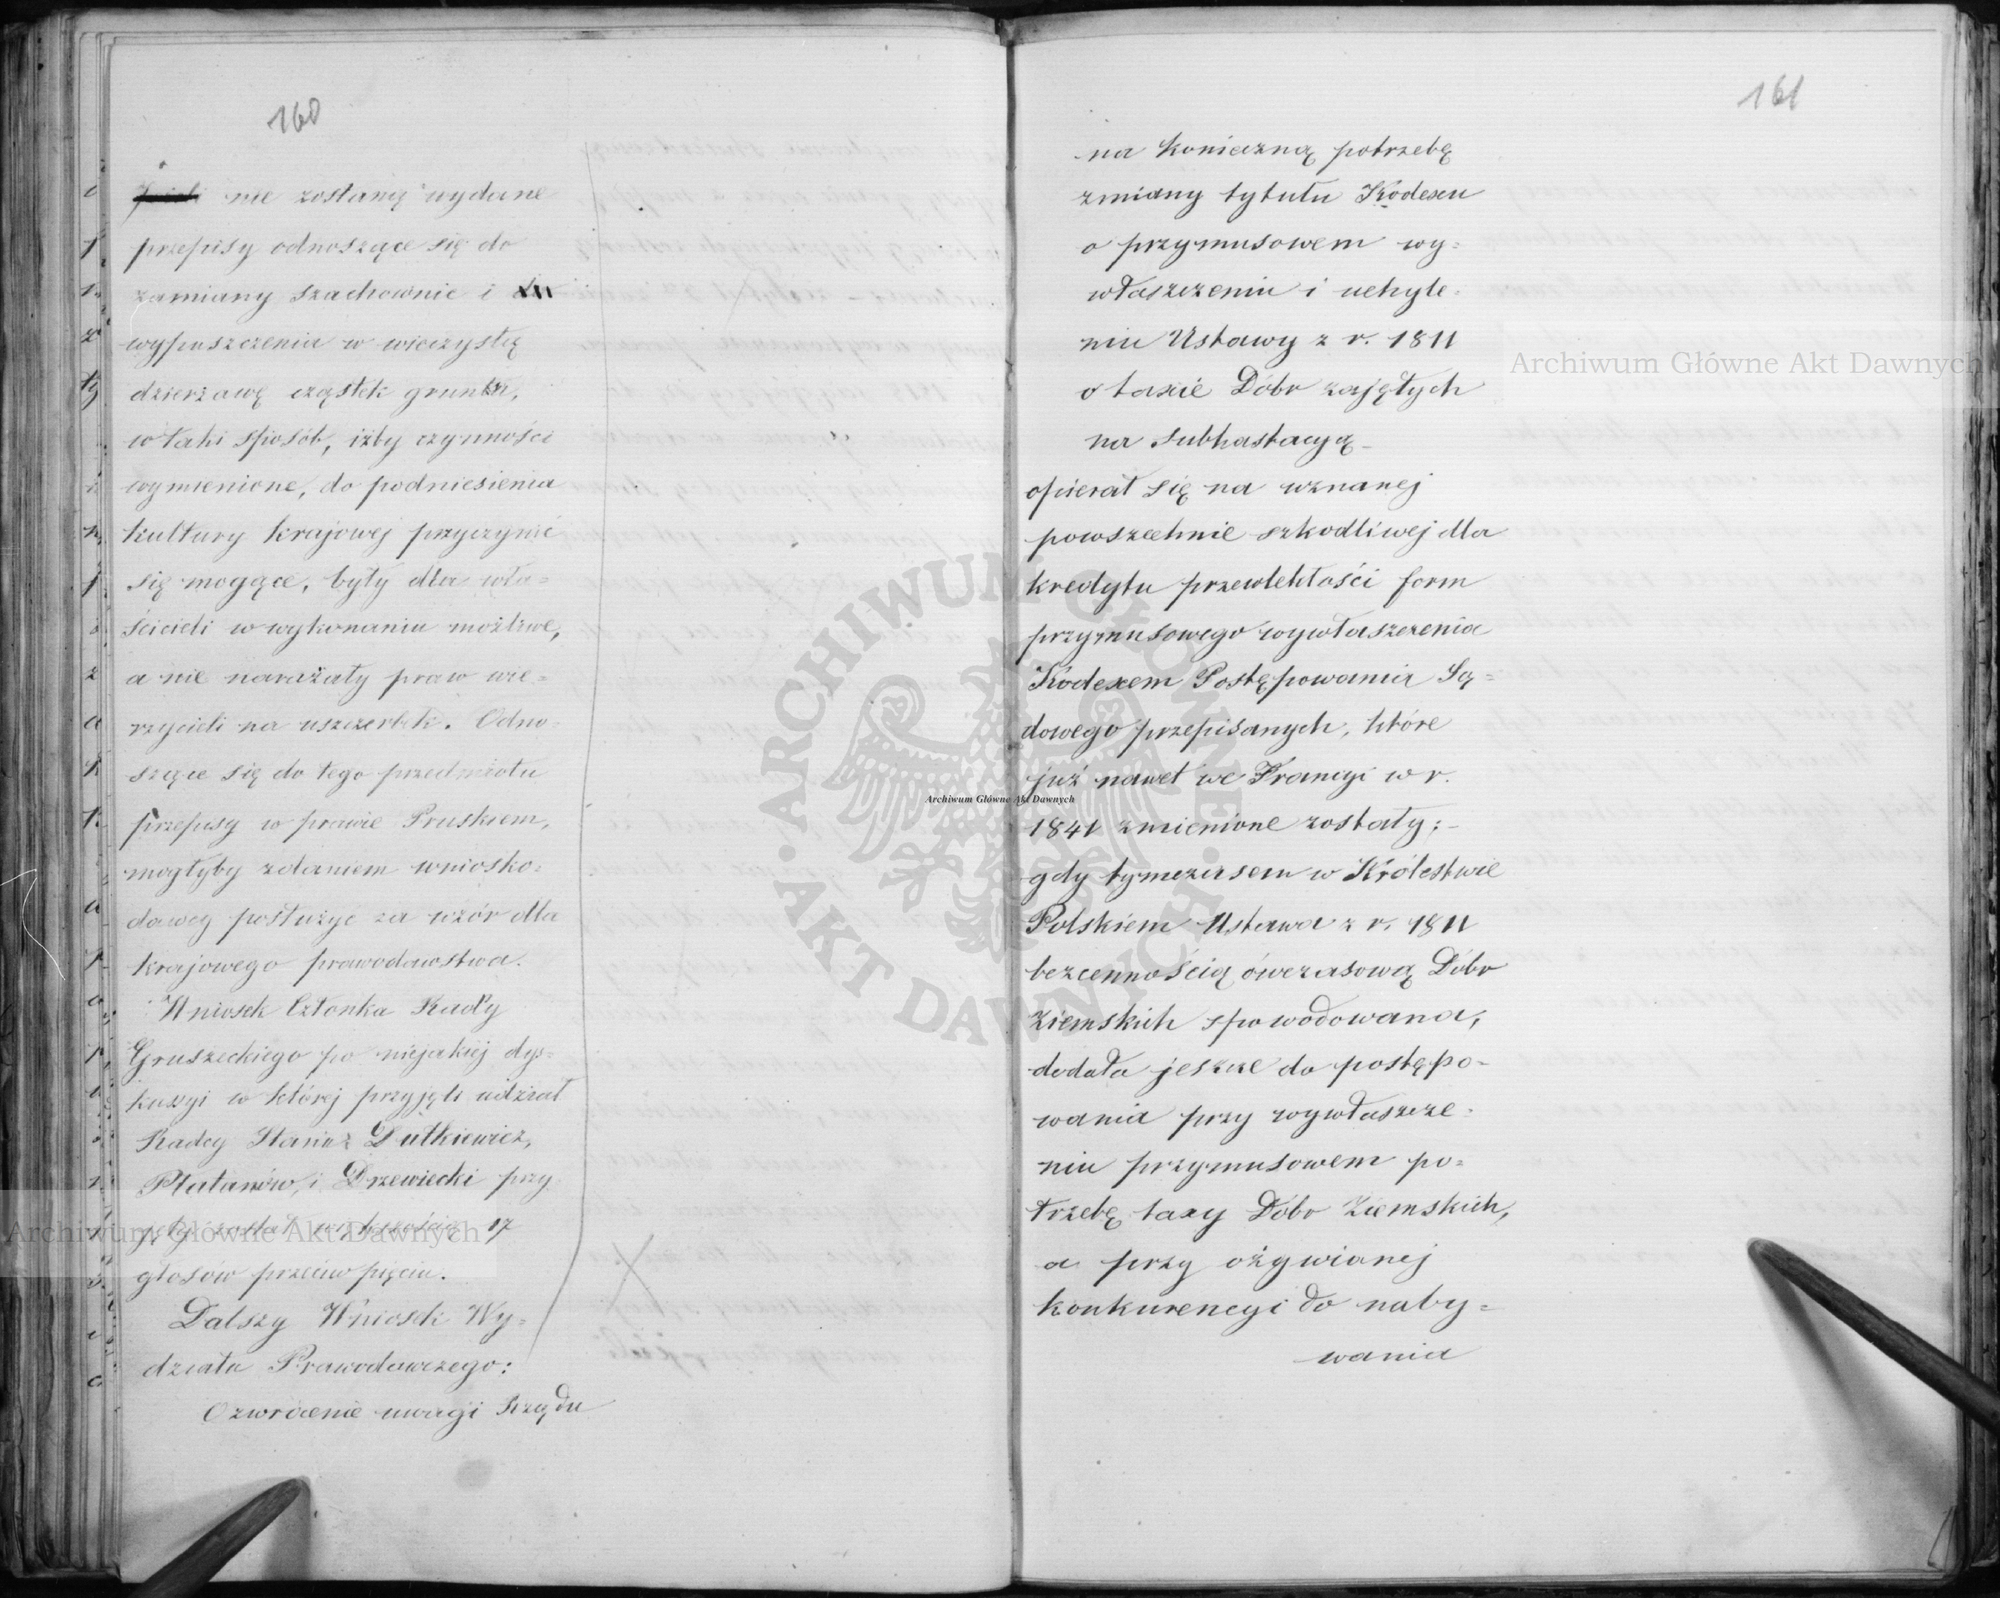 160
nie zostaną wydane
przepisy odnoszące się do
zamiany szachownic i
wypuszczenia w wieczystą
dzierżawę cząstek gruntu,
w taki sposób, iżby czynności
wymienione, do podniesienia
kultury krajowej przyczynić
się mogące, były dla wła=
ścicieli w wykonaniu możliwe,
a nie narażały praw wie=
rzycieli na uszczerbek. Odno=
szące się do tego przedmiotu
przepisy w prawie Pruskiem,
mogłyby zdaniem wniosko=
dawcy posłużyć za wzór dla
krajowego prawodawstwa.
Wniosek Członka Rady
Gruszeckiego po niejakiej dys=
kusyi w której przyjęli udział
Radcy Stanu: Dutkiewicz,
Płatanów, i Drzewiecki przy=
jęty został większością 17
głosów przeciw pięciu.
Dalszy Wniosek Wy=
działu Prawodawczego:
O zwrócenie uwagi Rządu
161
na konieczną potrzebę
zmiany tytułu Kodexu
o przymusowem wy=
właszczeniu i uchyle=
niu Ustawy z r. 1811
o taxie Dóbr zajętych
na subhastacyą
opierał się na uznanej
powszechnie szkodliwej dla
kredytu przewlekłości form
przymusowego wywłaszczenia
Kodexem Postępowania Są=
dowego przepisanych, które
już nawet we Francyi w r.
1841 zmienione zostały;
gdy tymczasem w Królestwie
Polskiem Ustawa z r. 1811
bezcennością ówczasową Dóbr
Ziemskich spowodowana,
dodała jeszcze do postępo=
wania przy wywłaszcze=
niu przymusowem po=
trzebę taxy Dóbr Ziemskich,
a przy ożywianej
konkurencyi do naby=
wania
Archiwum Główne Akt Dawnych
Archiwum Główne Akt Dawnych
Archiwum Główne Akt Dawnych
ARCHIWUM GŁÓWNE AKT DAWNYCH